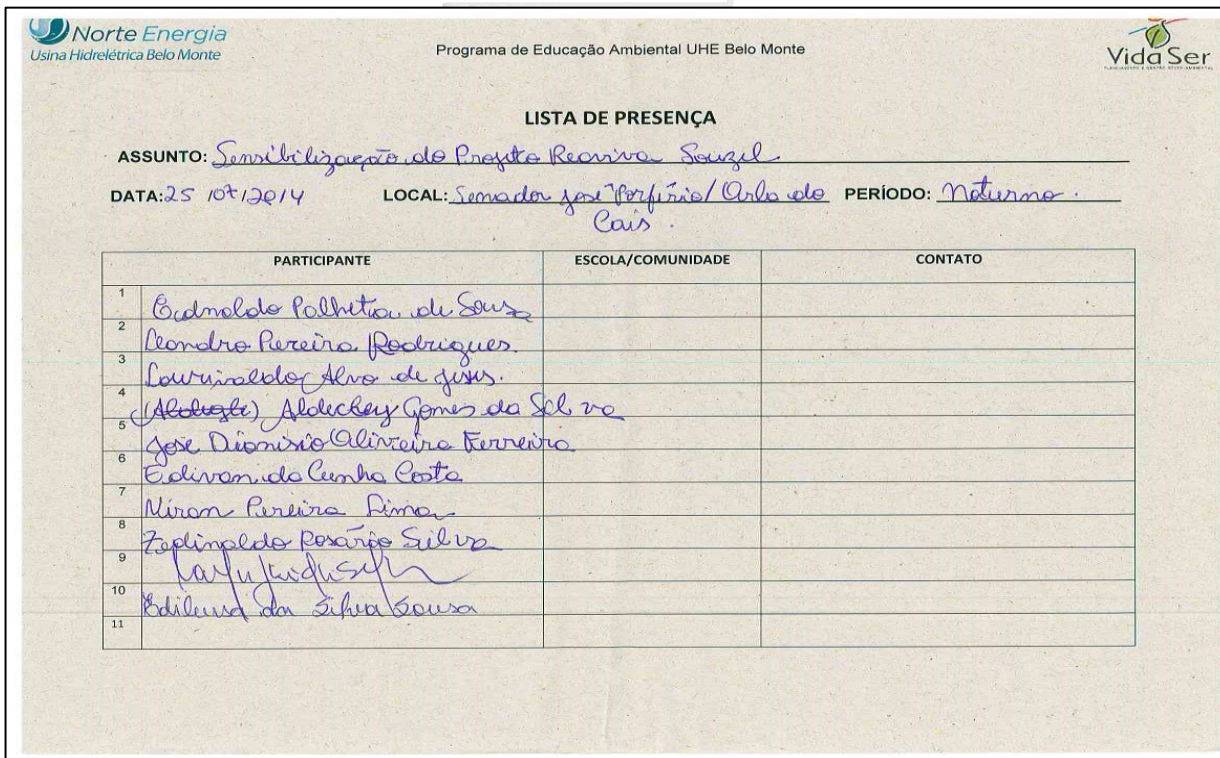 Norte Energia
Usina Hidrelétrica Belo Monte
Programa de Educação Ambiental UHE Belo Monte
Vida Ser
LISTA DE PRESENÇA
ASSUNTO: Sensibilização do Projeto Reaviva Souzel
DATA: 25/07/2014 LOCAL: Senador José Porfírio/Orla do PERÍODO: Noturno.
Cais.
PARTICIPANTE ESCOLA/COMUNIDADE CONTATO
1 Palheta de Sousa
2 Leandro Pereira Rodrigues.
3 Lourivaldo Alve de Jesus.
4 Gomes da Silva
5 Jose Dionisio Oliveira Ferreira
6 Edivan da Cunha Costa
7 Miran Pereira Lima
8 Rosário Silva
9
10 Edileusa da Silva Sousa
11